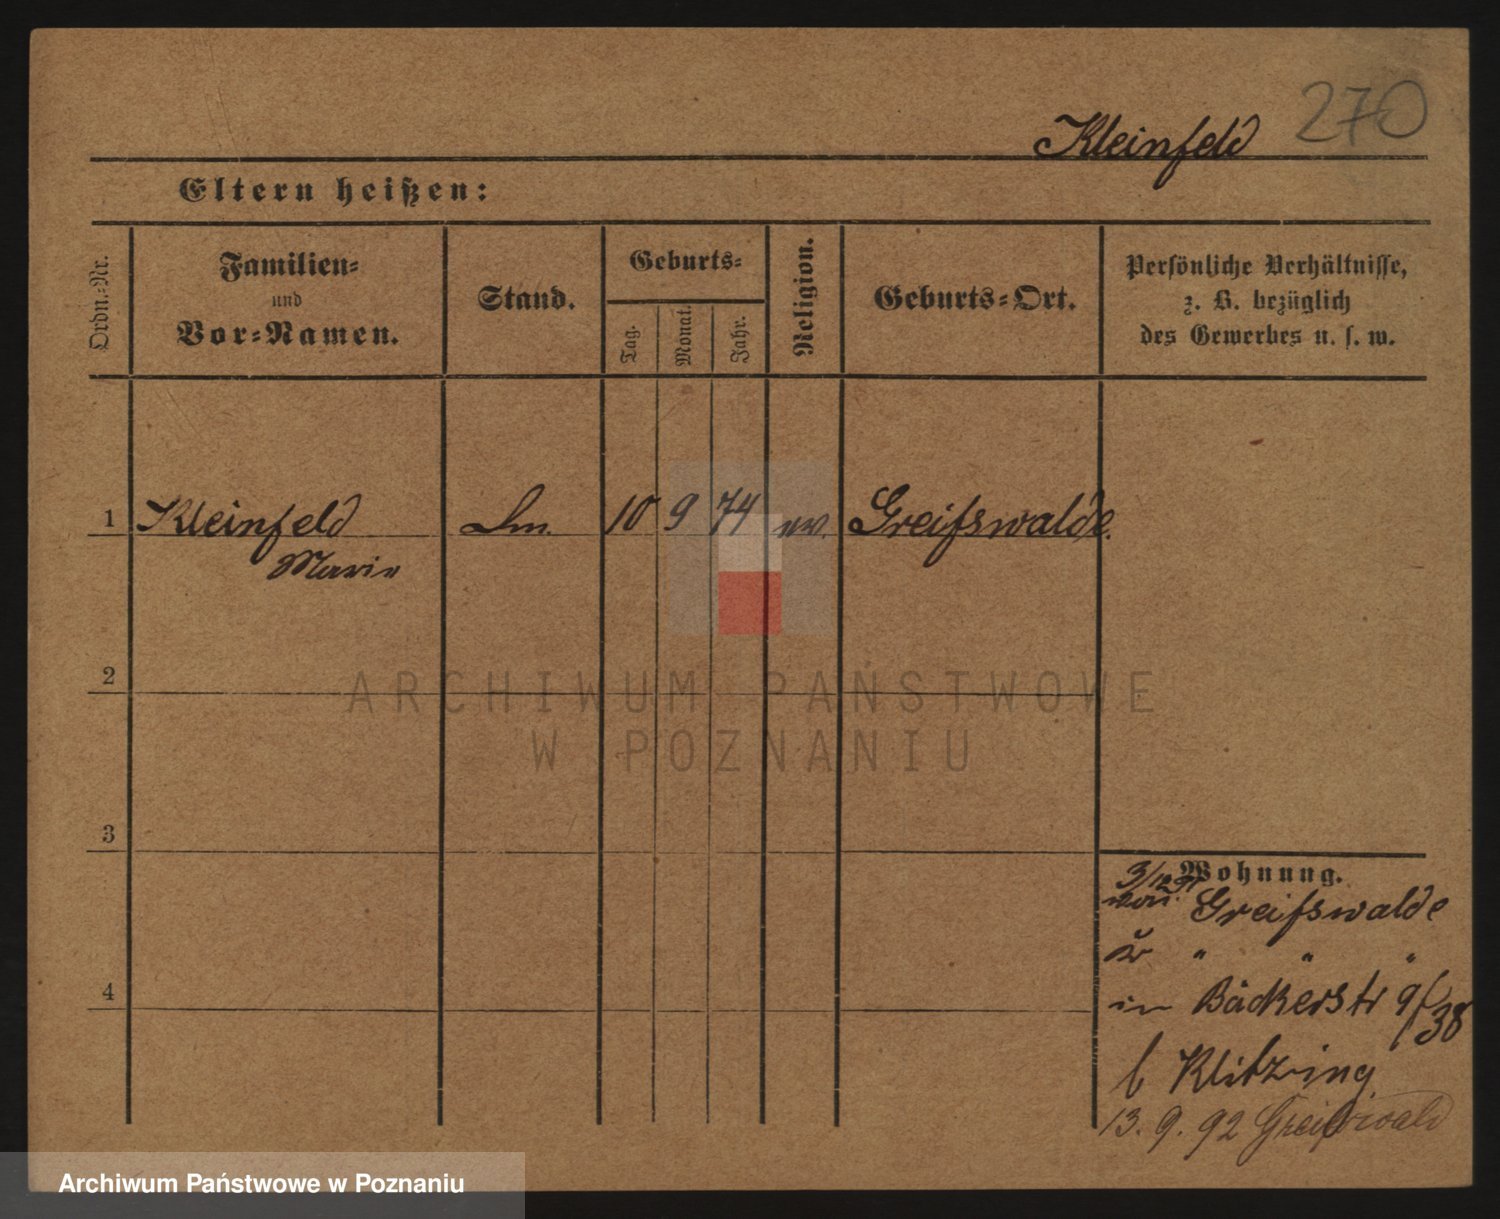 270
Kleinfeld
Eltern heißen:
Ordn.-Nr.
Familien-
und
Vor-Namen.
Stand.
Geburts-
Tag.
Monat.
Jahr.
Religion.
Geburts-Ort.
Persönliche Verhältnisse,
z. B. bezüglich
des Gewerbes u. s. w.
1 Kleinfeld 10 9 74 Greifswalde
Marie
2
ARCHIWUM PAŃSTWOWE
W POZNANIU
3
Wohnung.
3/12 91
von Greifswalde
" " "
4
in Bäckerstr 9/38
b Klitzing
13. 9. 92 Greifswald
Archiwum Państwowe w Poznaniu